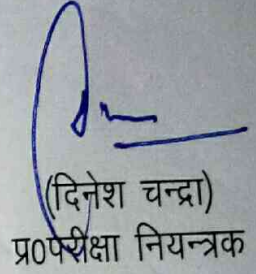 (दिनेश चन्द्रा)
प्र०परीक्षा नियन्त्रक